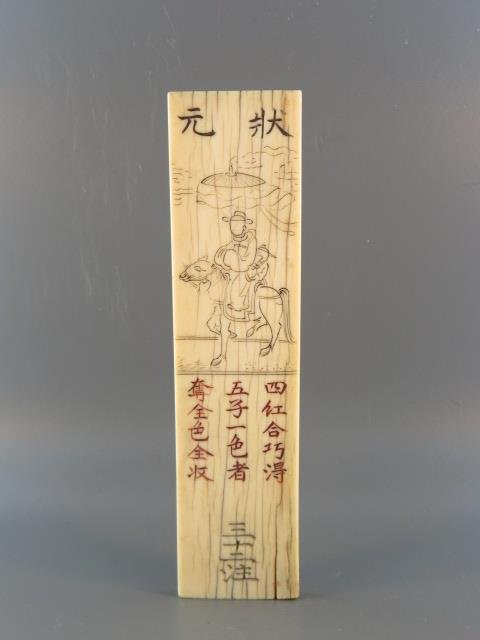 狀元
四紅合巧淂
五子一色者
奪全色全收
三十二注